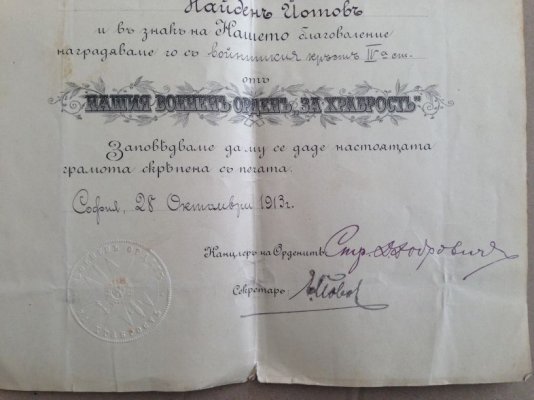 Найденъ Йотовъ
и въ знакъ на Нашето благоволение
награждаваме го съ войнишкия кръстъ IVа ст.
отъ
НАШИЯ ВОЕНЕНЪ ОРДЕНЪ „ЗА ХРАБРОСТЬ“
Заповѣдваме да му се даде настоящата
грамота скрѣпена съ печата.
София, 28 Октомври 1913 г.
Канцлеръ на Орденитѣ
Секретаръ: